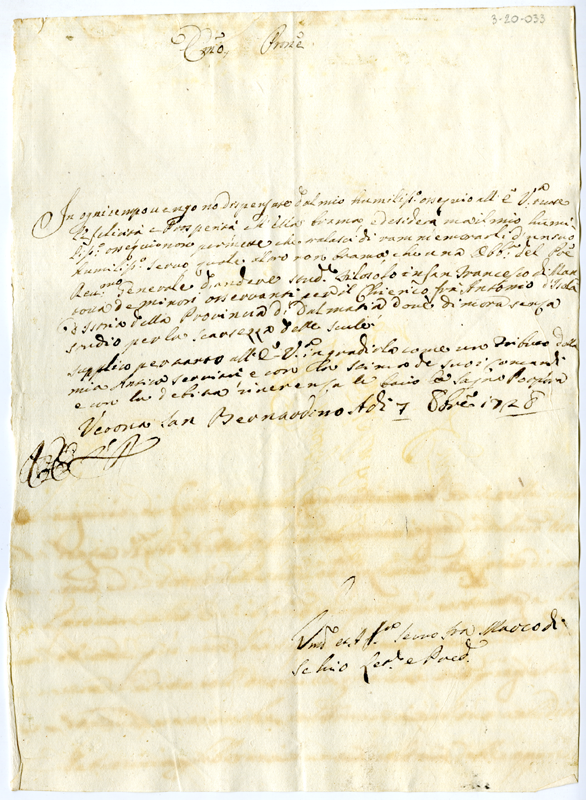 3-20-033
Em.º Prnē
In ogni tempo vengo no dispensare dal mio humiliss.º ossequio all' E.ª V.ra
felicità e Prosperità ch' Ella brama, e desidera ma il mio humi
liss.º ossequio non permette che
humiliss.º servo, quale altro non brama che una del P.re
Reu.mo Generale d'andare stud.e Filosofo in San Francesco di Man
toua de minori osservanti per il Chierico fra Antonio d'Isola
d'Istria della Provincia di Dalmatia doue dimora senza
studio per la scarsezza delle scole
supplico per tanto all' E.ª V.ª ingradirla come un tributo della
mia Antica servitù e con la de suoi comandi
e con la debita riverenza le bacio la Sagra Porpora
Verona San Bernardino Adi 7 8bre 1728
Um.º et seruo fra Marco di
Schio Let.e e Pred.e